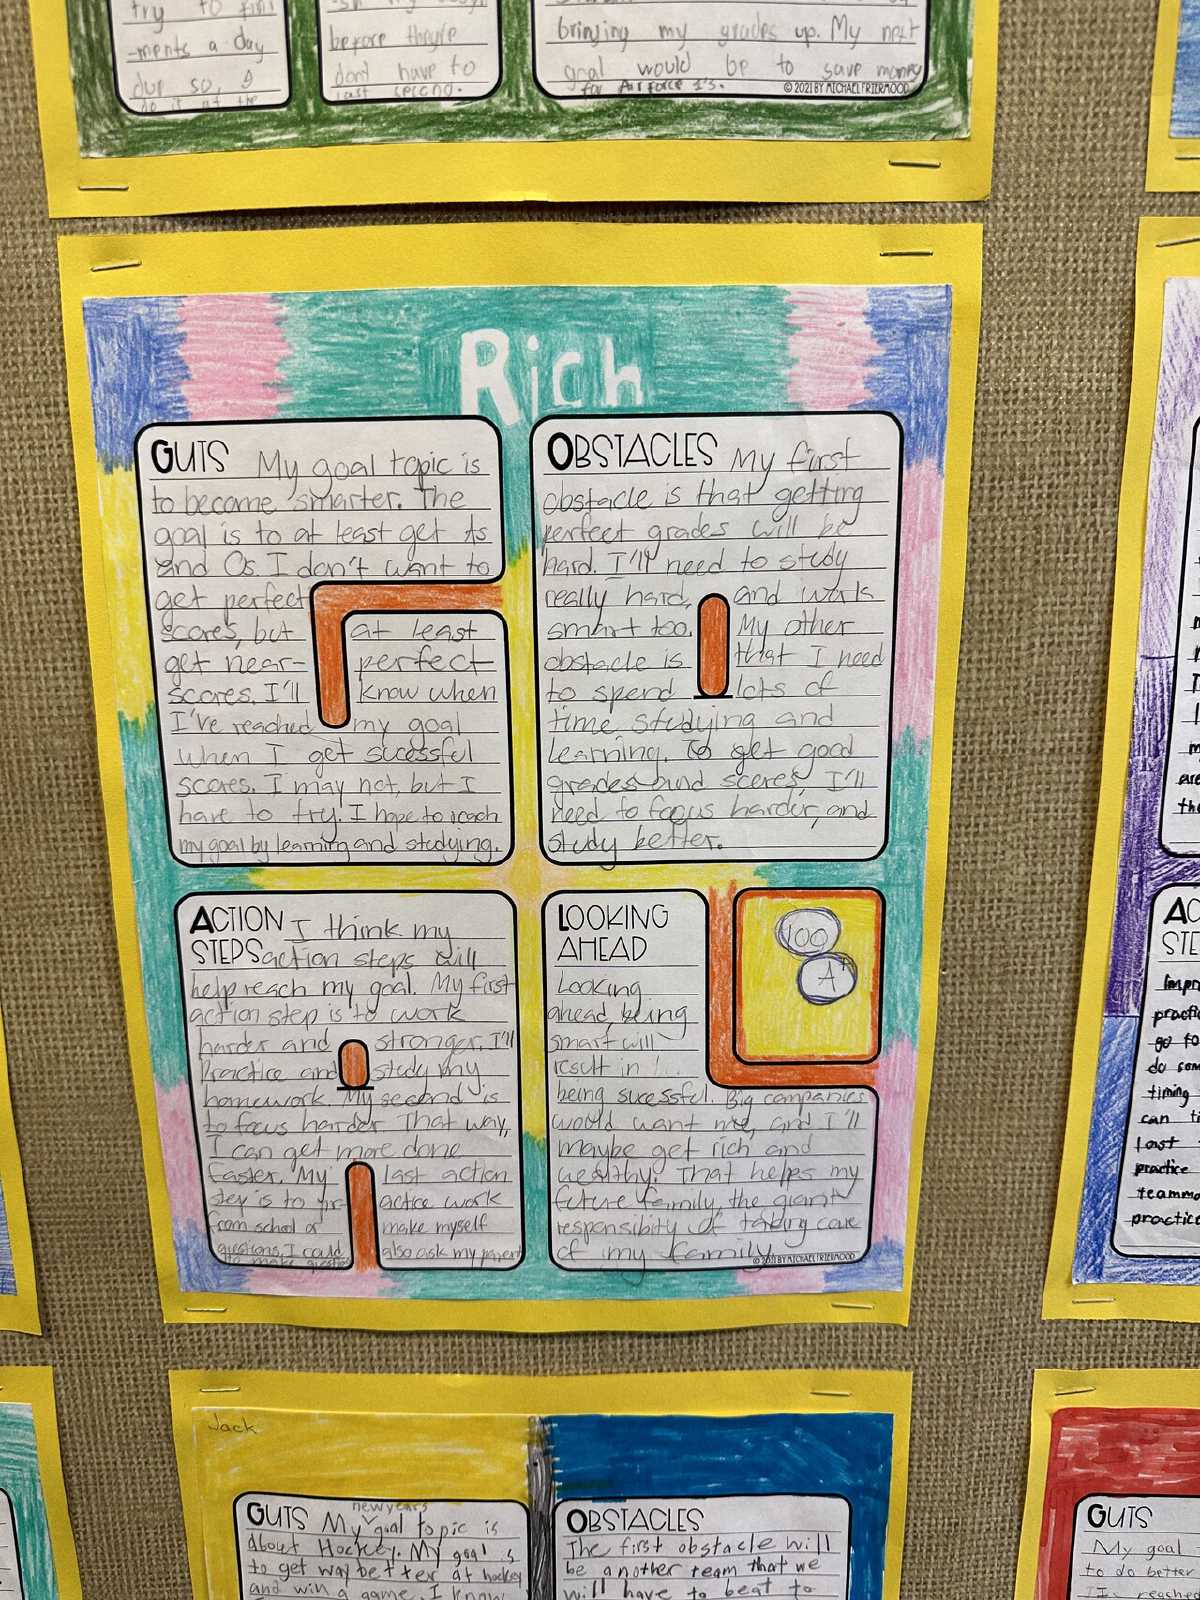 try to fini
-ments a day
due so, I
do it at the
before they're
dont have to
last second.
bringing my grades up. My next
goal would be to save money
for Air force 1's.
© 2021 BY MICHAEL FRIERMOOD
Rich
GUTS My goal topic is
to become smarter. The
goal is to at least get As
and Os. I don't want to
get perfect
scores, but at least
get near- perfect
scores. I'll know when
I've reached my goal
when I get sucessful
scores. I may not, but I
have to try. I hope to reach
my goal by learning and studying.
OBSTACLES My first
obstacle is that getting
perfect grades will be
hard. I'll need to study
really hard, and work
smart too. My other
obstacle is that I need
to spend lots of
time studying and
learning. To get good
grades and scores, I'll
need to focus harder, and
study better.
ACTION I think my
STEPS action steps will
help reach my goal. My first
action step is to work
harder and stronger. I'll
Practice and study my
homework. My second is
to focus harder. That way,
I can get more done
faster. My last action
step is to pr- actice work
from school or make myself
questions, I could also ask my parent
to make questions
LOOKING
AHEAD
Looking
ahead, being
smart will
result in
being sucessful. Big companies
would want me, and I'll
maybe get rich and
wealthy. That helps my
future family, the giant
responsibility of taking care
of my family
© 2021 BY MICHAEL FRIERMOOD
100
A+
AC
STE
Impr
practic
go fo
do som
timing
can ti
Last
practice
teamma
practice
Jack
newyears
GUTS My goal topic is
about Hockey. My goal is
to get way better at hockey
and win a game. I know
OBSTACLES
The first obstacle will
be another team that we
will have to beat to
GUTS
My goal
to do better
I'll reached